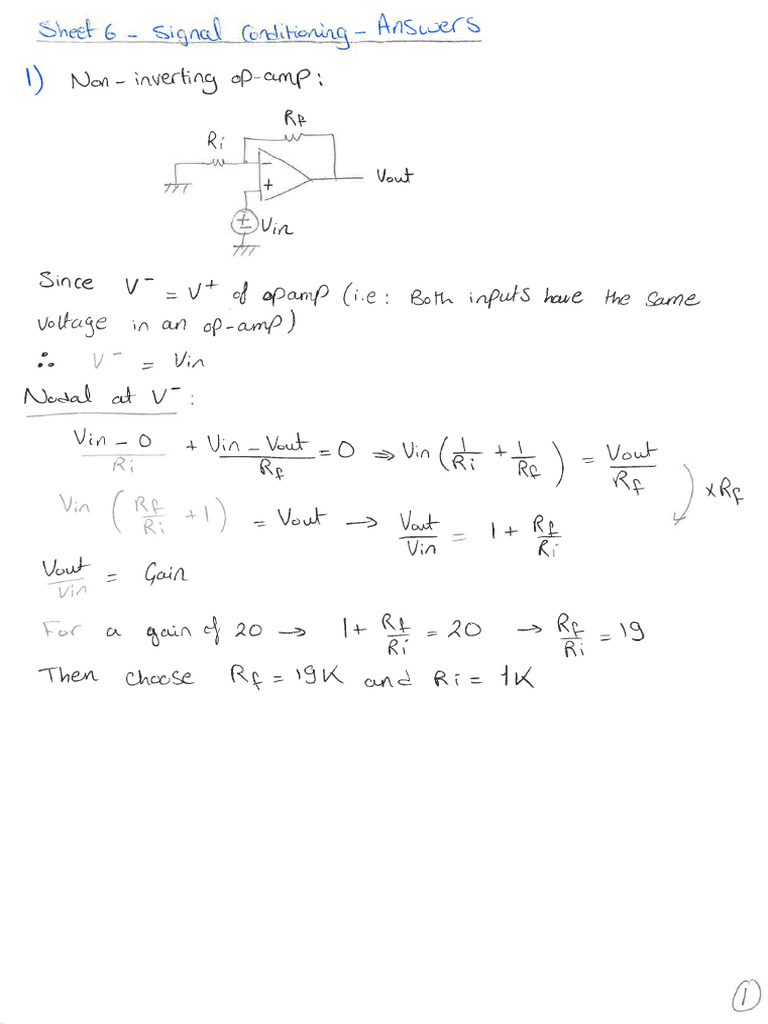 Sheet 6 - Signal Conditioning - Answers
1) Non-inverting op-amp:
Rf
Ri
-
+
Vout
Vin
Since V⁻ = V⁺ of opamp (i.e: Both inputs have the same
voltage in an op-amp)
∴ V⁻ = Vin
Nodal at V⁻:
(Vin - 0)/Ri + (Vin - Vout)/Rf = 0 ⇒ Vin (1/Ri + 1/Rf) = Vout/Rf
×Rf
Vin (Rf/Ri + 1) = Vout → Vout/Vin = 1 + Rf/Ri
Vout/Vin = Gain
For a gain of 20 → 1 + Rf/Ri = 20 → Rf/Ri = 19
Then choose Rf = 19K and Ri = 1K
1